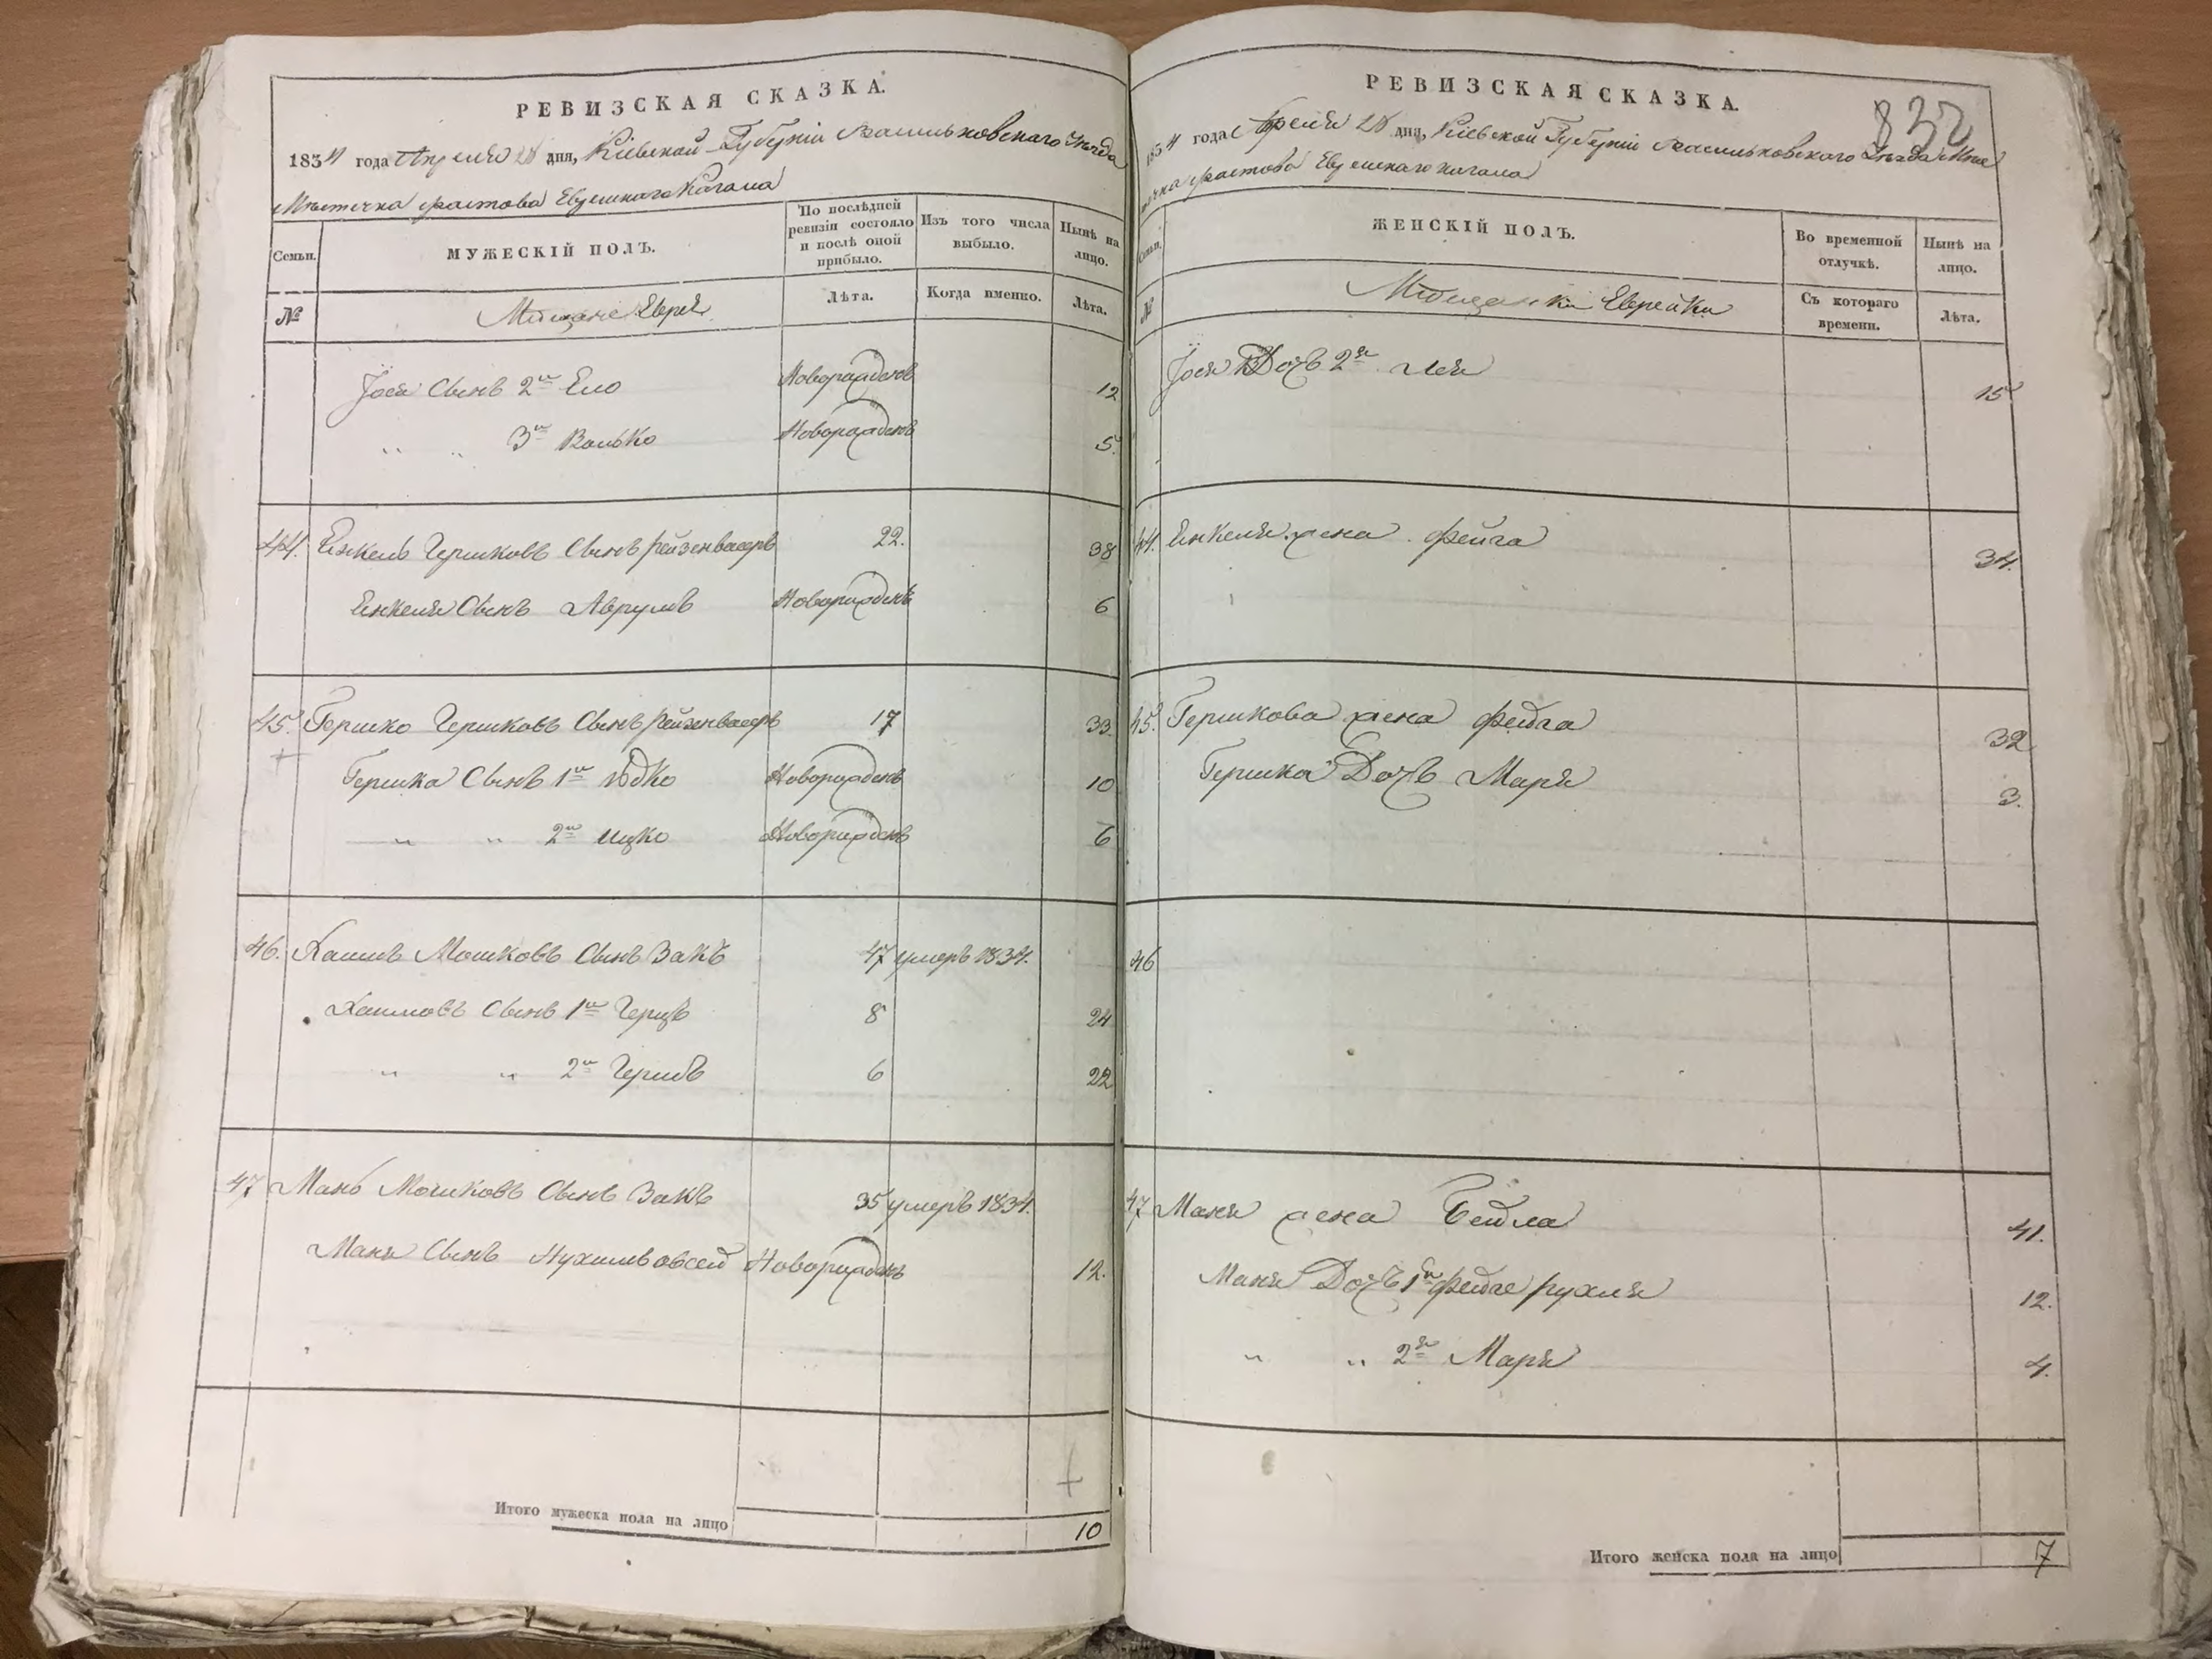 РЕВИЗСКАЯ СКАЗКА.
1834 года Апреля 28 дня, Кіевской Губерніи Васильковского Уезда
Мѣстечка Фастова Еврейскаго Кагала
Семьи.
МУЖЕСКІЙ ПОЛЪ.
По послѣдней ревизіи состояло и послѣ оной прибыло.
Изъ того числа выбыло.
Нынѣ на лицо.
№
Мѣщане Евреи
Лѣта.
Когда именно.
Лѣта.
Йося Сынъ 2й Ело Новорожденъ 12
" " 3й Волько Новорожденъ 5
44. Енкель Гершковъ Сынъ Рейзенвасеръ 22. 38
Енкеля Сынъ Аврумъ Новорожденъ 6
45. Гершко Гершковъ Сынъ Рейзенвасеръ 17 33.
Гершка Сынъ 1й Юдко Новорожденъ 10
" " 2й Ицко Новорожденъ 6
46. Хаимъ Мошковъ Сынъ Закъ 47 умеръ 1834.
Хаимовъ Сынъ 1й Герцъ 8 24
" " 2й Гершъ 6 22
47 Мань Мошковъ Сынъ Закъ 35 умеръ 1834.
Маня Сынъ Нухимъ Овсей Новорожденъ 12.
Итого мужеска пола на лицо 10
РЕВИЗСКАЯ СКАЗКА.
832
1834 года Апреля 28 дня, Кіевской Губерніи Васильковского Уезда Мѣс
течка Фастова Еврейскаго Кагала
Семьи.
ЖЕНСКІЙ ПОЛЪ.
Во временной отлучкѣ.
Нынѣ на лицо.
№
Мѣщанки Еврейки
Съ котораго времени.
Лѣта.
Йося Дочь 2я Лея 15
44. Енкеля жена Фейга 34.
45. Гершкова жена Фейга 32
Гершка Дочь Маря 3.
46
47 Маня жена Бейла 41.
Маня Дочь 1я Фейге Рухля 12.
" " 2я Маря 4.
Итого женска пола на лицо 7